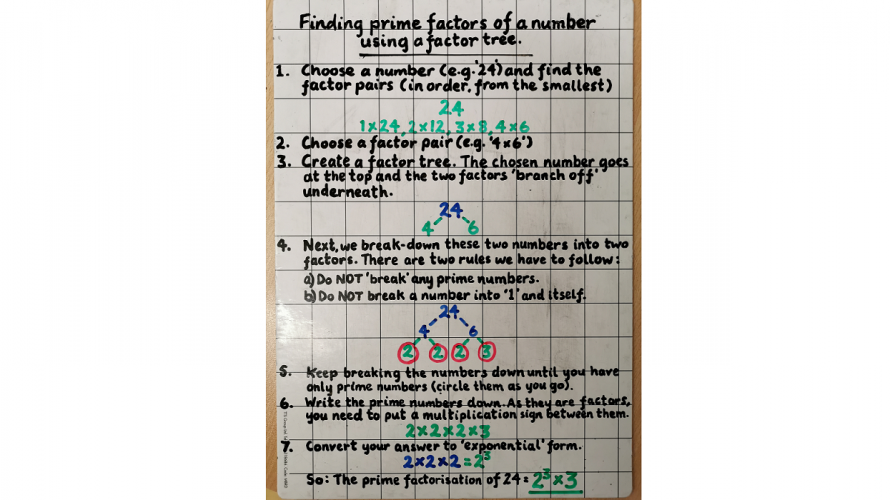 Finding prime factors of a number
using a factor tree.
1. Choose a number (e.g. '24') and find the
factor pairs (in order, from the smallest)
24
1×24, 2×12, 3×8, 4×6
2. Choose a factor pair (e.g. '4×6')
3. Create a factor tree. The chosen number goes
at the top and the two factors 'branch off'
underneath.
24
4 6
4. Next, we break-down these two numbers into two
factors. There are two rules we have to follow:
a) Do NOT 'break' any prime numbers.
b) Do NOT break a number into '1' and itself.
24
4 6
2 2 2 3
5. Keep breaking the numbers down until you have
only prime numbers (circle them as you go).
6. Write the prime numbers down. As they are factors,
you need to put a multiplication sign between them.
2×2×2×3
7. Convert your answer to 'exponential' form.
2×2×2=2³
So: The prime factorisation of 24= 2³×3